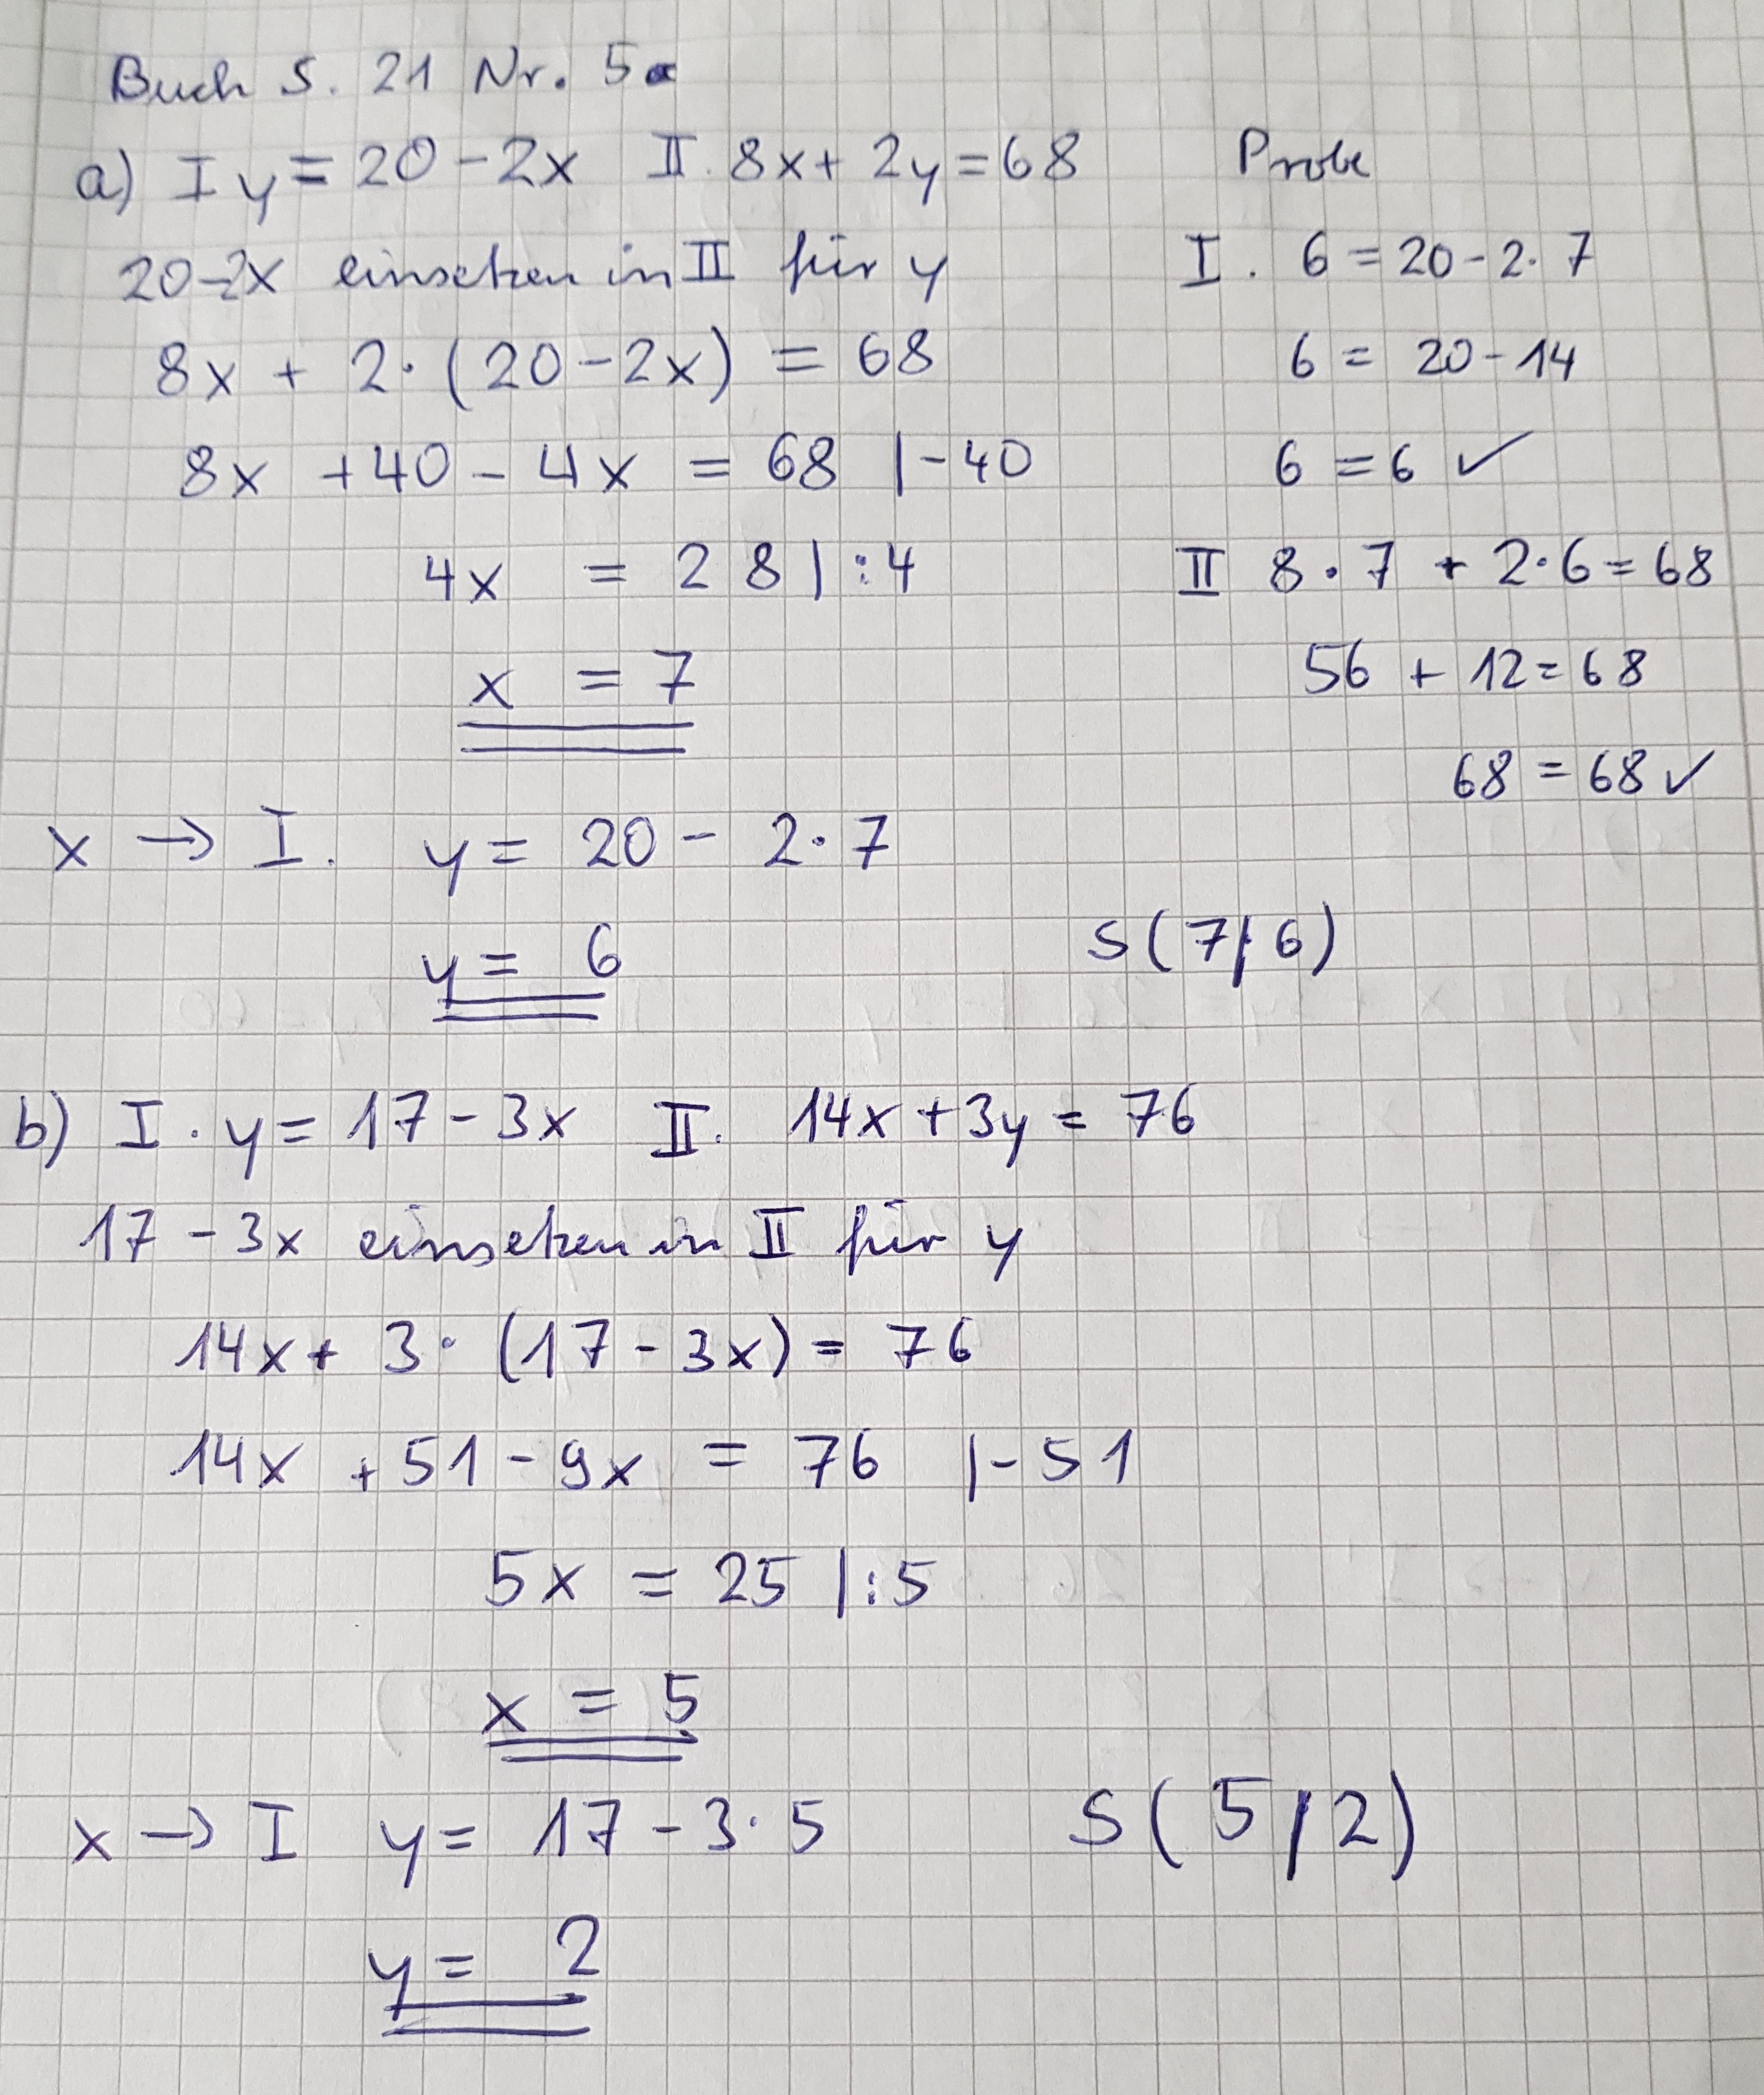 Buch S. 21 Nr. 5
a) I y = 20 - 2x II. 8x + 2y = 68
20-2x einsetzen in II für y
8x + 2·(20-2x) = 68
8x +40 - 4x = 68 |-40
4x = 28 |:4
x = 7
x → I. y = 20 - 2·7
y = 6
Probe
I. 6 = 20-2·7
6 = 20-14
6 = 6 ✓
II 8·7 + 2·6 = 68
56 + 12 = 68
68 = 68 ✓
S(7|6)
b) I. y = 17 - 3x II. 14x + 3y = 76
17 - 3x einsetzen in II für y
14x + 3·(17 - 3x) = 76
14x + 51 - 9x = 76 |-51
5x = 25 |:5
x = 5
x → I y = 17 - 3·5
y = 2
S(5|2)